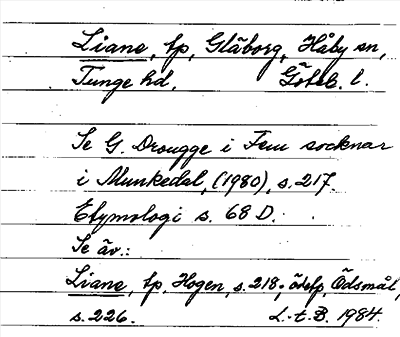 Liane, tp, Glåborg, Håby sn,
Tunge hd, Göteb. l.
Se G. Drougge i Fem socknar
i Munkedal, (1980), s. 217.
Etymologi s. 68 D.
Se äv.:
Liane, tp, Hogen, s. 218; ödetp, Ödsmål,
s. 226. L.-t. B. 1984.